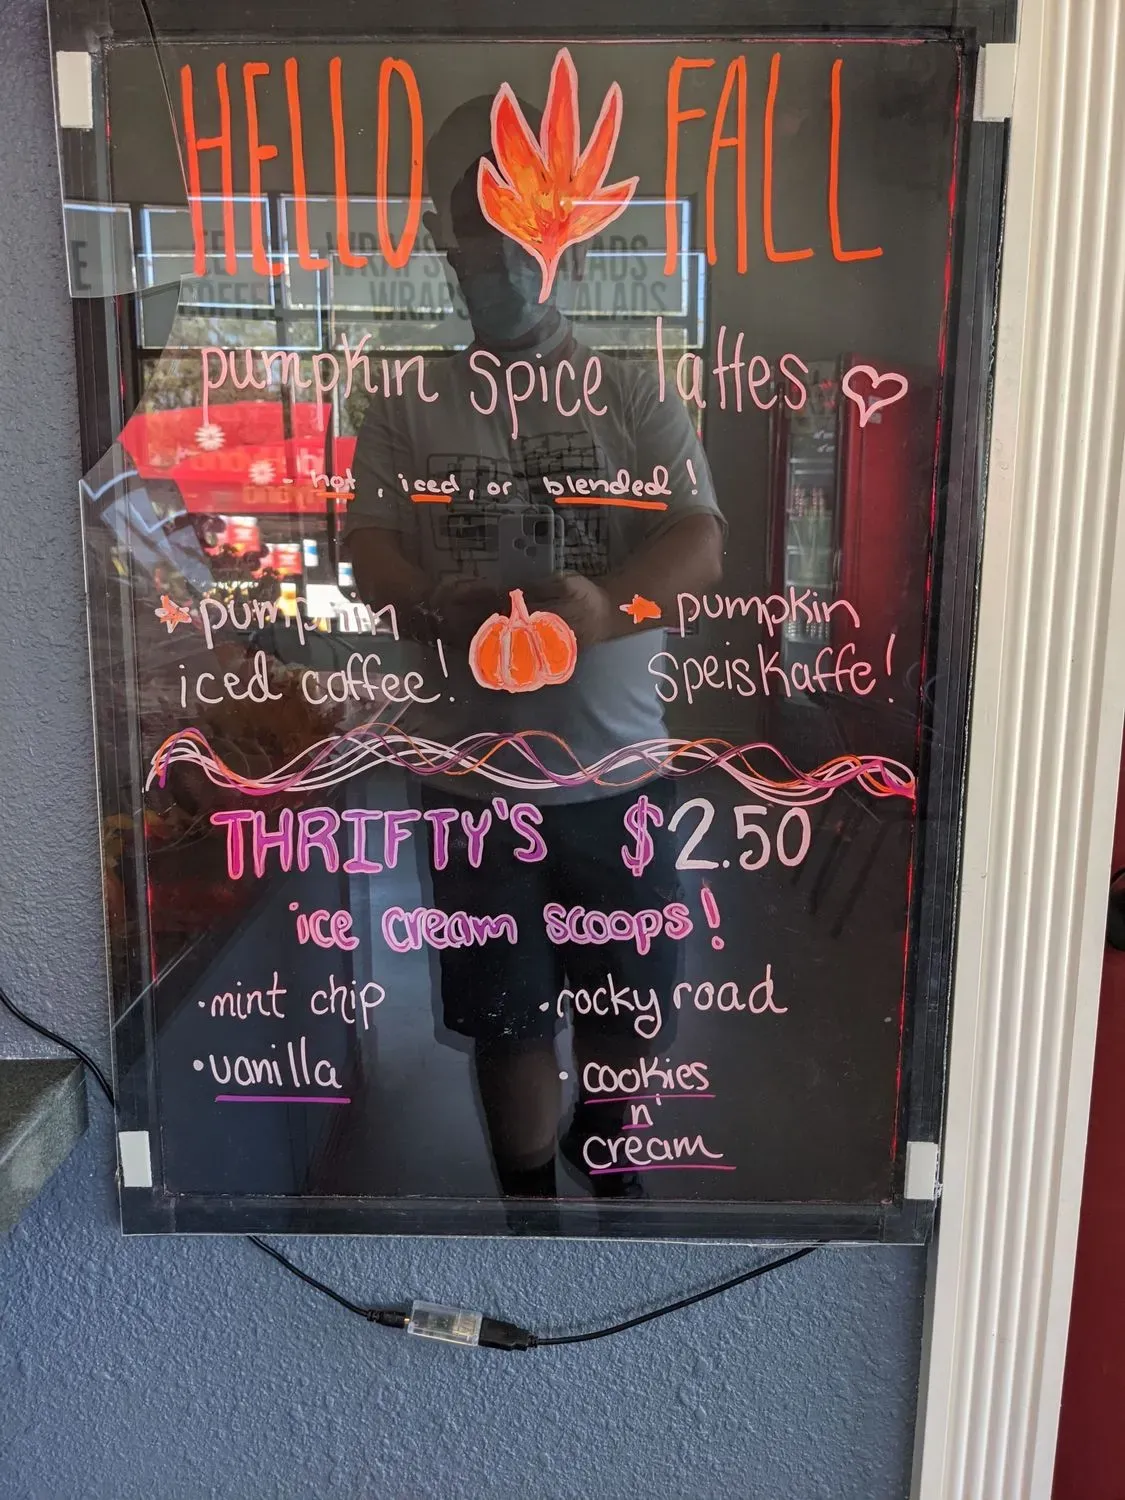 HELLO FALL
pumpkin spice lattes
- hot, iced, or blended!
pumpkin
iced coffee!
pumpkin
speiskaffe!
THRIFTY'S $2.50
ice cream scoops!
· mint chip
· rocky road
· vanilla
· cookies
n'
cream
WRAPS SALADS
COFFEE WRAPS SALADS